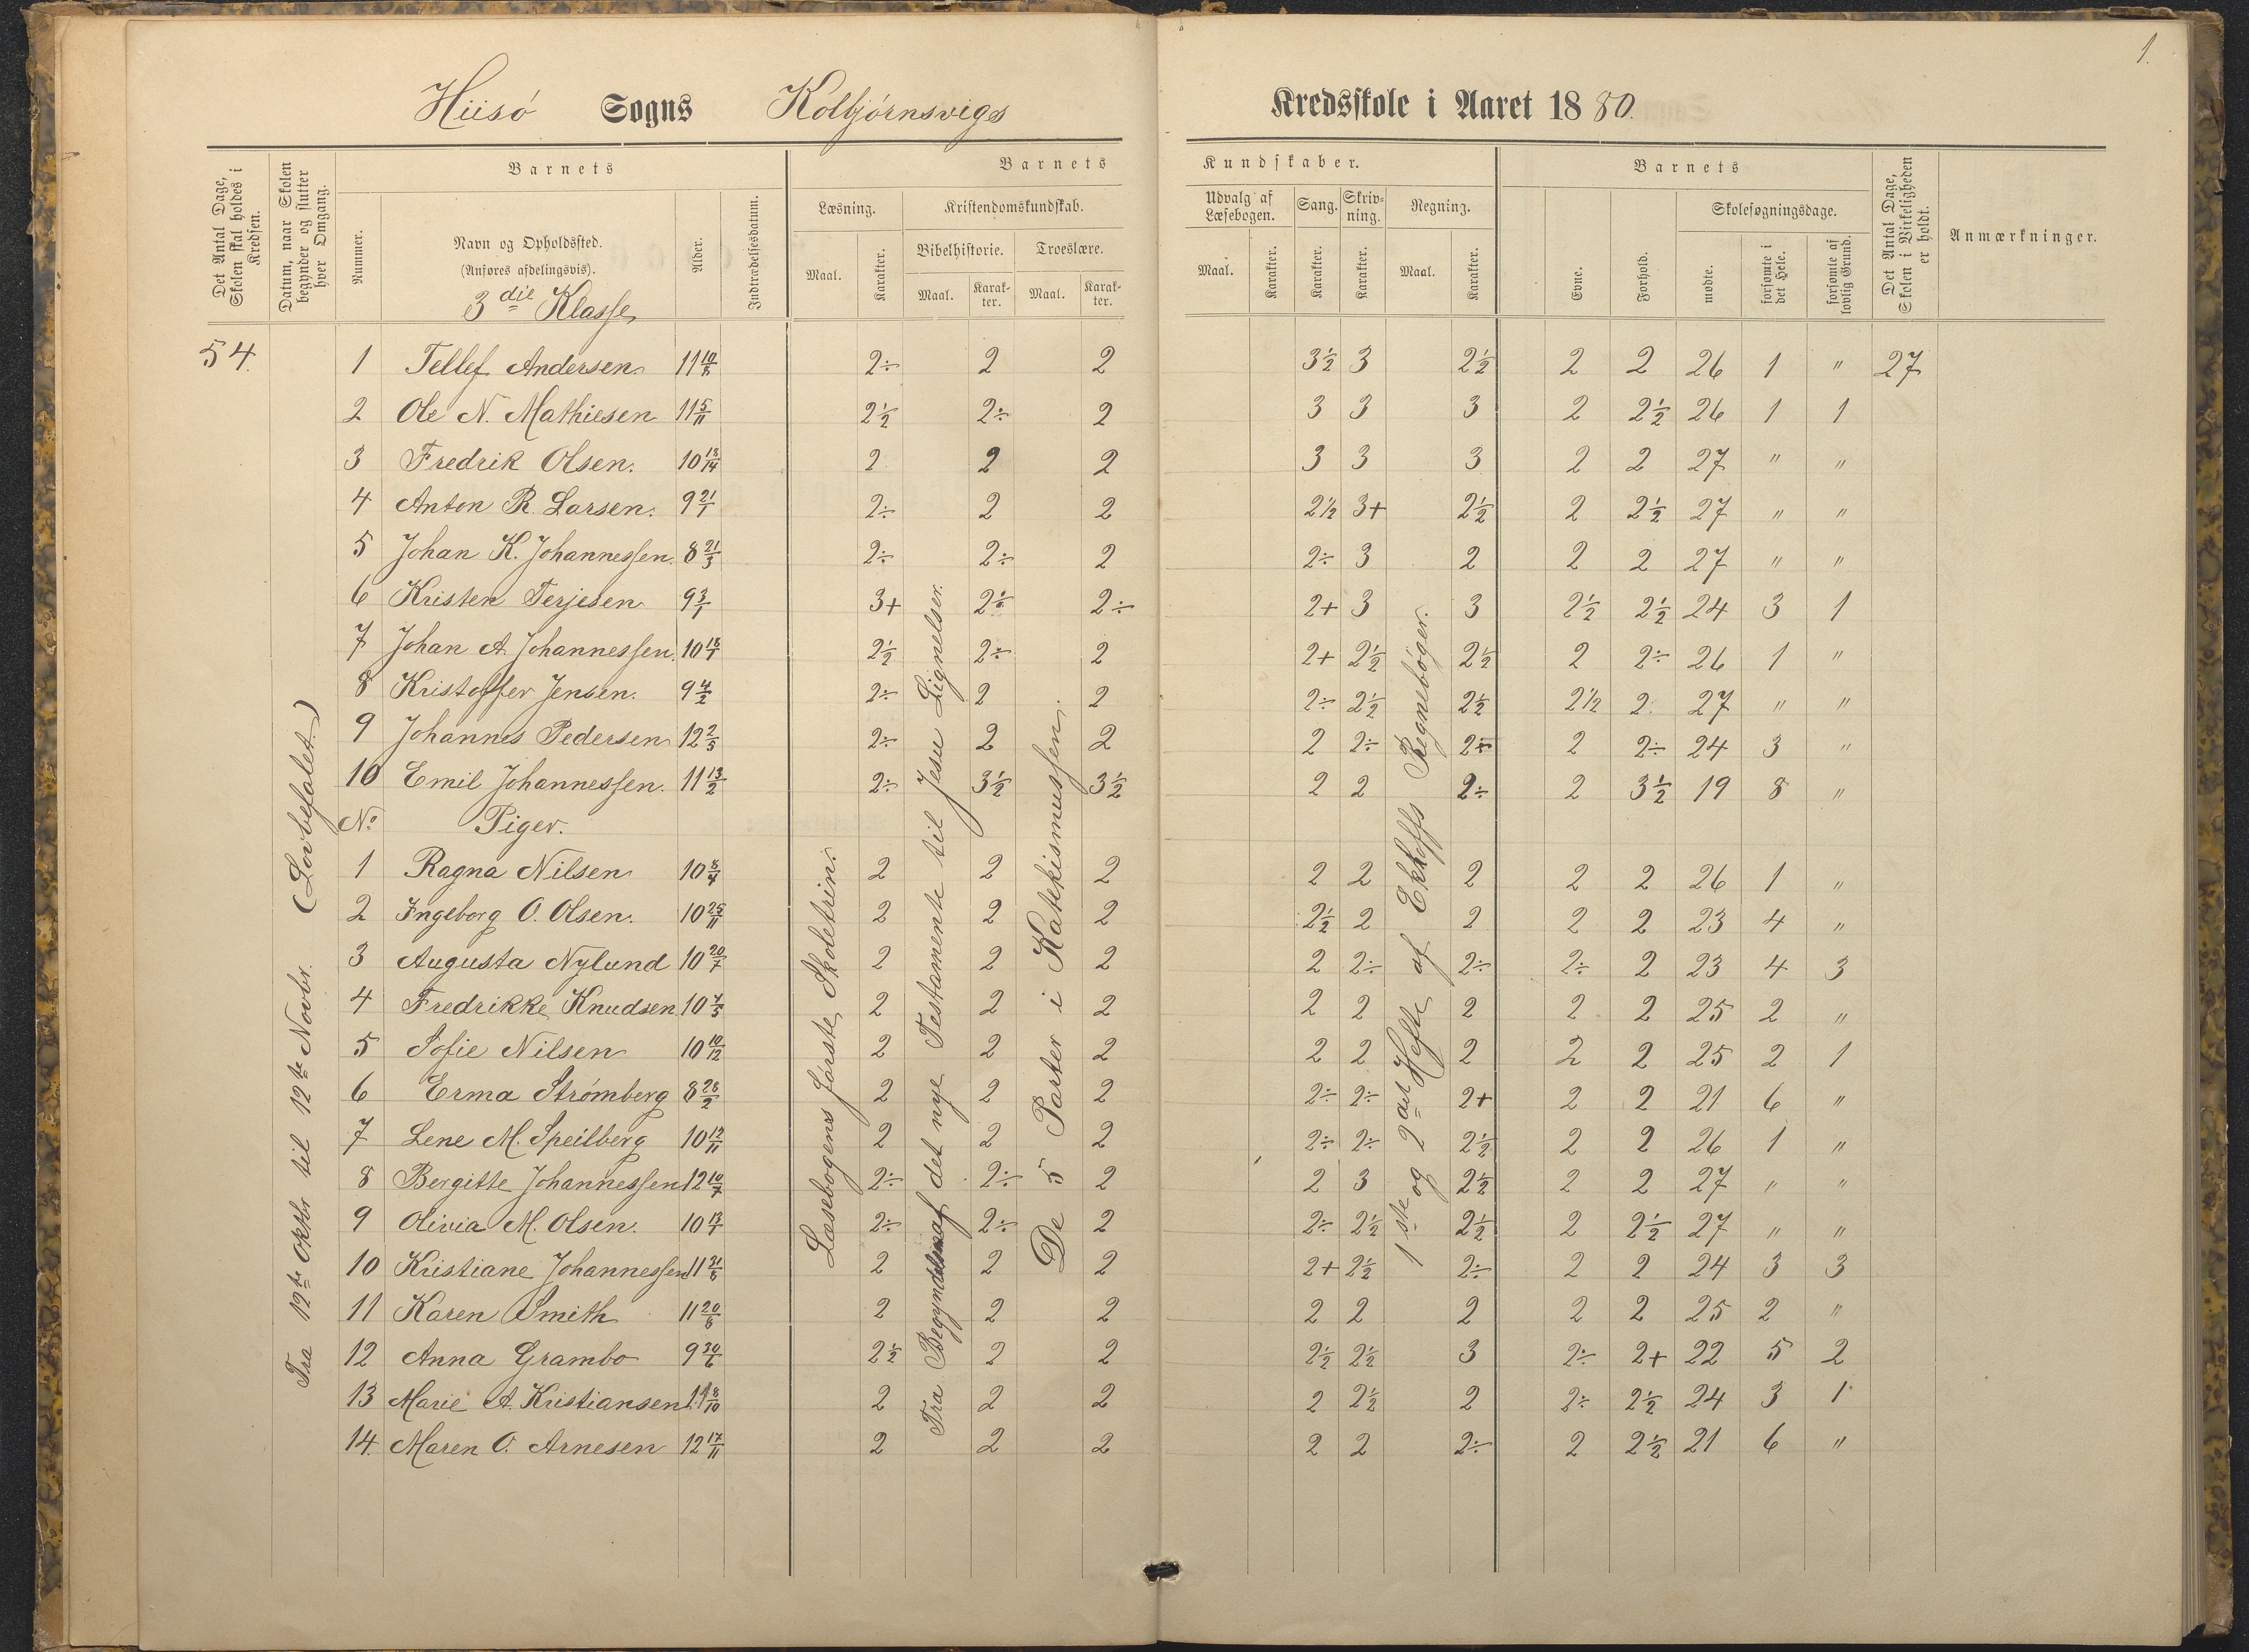 1.
Hiisö Sogns Kolbjörnsvigs Kredsskole i Aaret 1880.
Det Antal Dage, Skolen skal holdes i Kredsen.
Datum, naar Skolen begynder og slutter hver Omgang.
Barnets
Nummer.
Navn og Opholdssted.
(Anføres afdelingsvis).
3die Klasse
Alder.
Indtrædelsesdatum.
Barnets Kundskaber.
Læsning.
Maal. Karakter.
Kristendomskundskab.
Bibelhistorie. Troeslære.
Maal. Karakter. Maal. Karakter.
Udvalg af Læsebogen. Sang. Skrivning. Regning.
Maal. Karakter. Karakter. Karakter. Maal. Karakter.
Barnets
Evne. Forhold.
Skolesøgningsdage.
mødte. forsømte i det Hele. forsømte af lovlig Grund.
Det Antal Dage, Skolen i Virkeligheden er holdt.
Anmærkninger.
54.
Fra 12te Oktbr til 12te Novbr. (Lovbefalet.)
Læsebogens første Skoletrin.
Fra Begyndelsen af det nye Testamente til Jesu Lignelser.
De 5 Parter i Katekismussen.
1ste og 2det Hefte af Ekhoffs Regnebøger.
1 Tellef Andersen 11 10/8 2÷ 2 2 3½ 3 2½ 2 2 26 1 " 27
2 Ole N. Mathiesen 11 5/11 2½ 2÷ 2 3 3 3 2 2½ 26 1 1
3 Fredrik Olsen. 10 18/14 2 2 2 3 3 3 2 2 27 " "
4 Anton R. Larsen. 9 21/1 2÷ 2 2 2½ 3+ 2½ 2 2½ 27 " "
5 Johan K. Johannessen. 8 21/3 2÷ 2÷ 2 2÷ 3 2 2 2 27 " "
6 Kristen Terjesen 9 3/1 3+ 2½ 2÷ 2+ 3 3 2½ 2½ 24 3 1
7 Johan A. Johannessen. 10 18/1 2½ 2÷ 2 2+ 2½ 2½ 2 2÷ 26 1 "
8 Kristoffer Jensen. 9 4/2 2÷ 2 2 2÷ 2½ 2½ 2½ 2 27 " "
9 Johannes Pedersen 12 2/5 2÷ 2 2 2 2÷ 2÷ 2 2÷ 24 3 "
10 Emil Johannessen. 11 13/2 2÷ 3½ 3½ 2 2 2÷ 2 3½ 19 8 "
No Piger.
1 Ragna Nilsen 10 8/4 2 2 2 2 2 2 2 2 26 1 "
2 Ingeborg O. Olsen. 10 25/11 2 2 2 2½ 2 2 2 2 23 4 "
3 Augusta Nylund 10 20/7 2 2 2 2 2÷ 2÷ 2÷ 2 23 4 3
4 Fredrikke Knudsen 10 7/3 2 2 2 2 2 2 2 2 25 2 "
5 Sofie Nilsen 10 10/12 2 2 2 2 2 2 2 2 25 2 1
6 Erma Strömberg 8 28/2 2 2 2 2÷ 2÷ 2+ 2 2 21 6 "
7 Lene M. Speilberg 10 12/11 2 2 2 2÷ 2÷ 2½ 2 2 26 1 "
8 Bergitte Johannessen 12 10/7 2÷ 2÷ 2 2 3 2½ 2 2 27 " "
9 Olivia M. Olsen. 10 13/7 2÷ 2÷ 2 2÷ 2½ 2½ 2 2½ 27 " "
10 Kristiane Johannessen 11 31/8 2 2 2 2+ 2½ 2÷ 2 2 24 3 3
11 Karen Smith 11 20/8 2 2 2 2 2 2 2 2 25 2 "
12 Anna Grambo 9 30/6 2½ 2 2 2½ 2½ 3 2÷ 2+ 22 5 2
13 Marie A. Kristiansen 11 8/10 2 2 2 2 2½ 2 2÷ 2½ 24 3 1
14. Maren O. Arnesen 12 17/11 2 2 2 2 2 2÷ 2 2½ 21 6 "